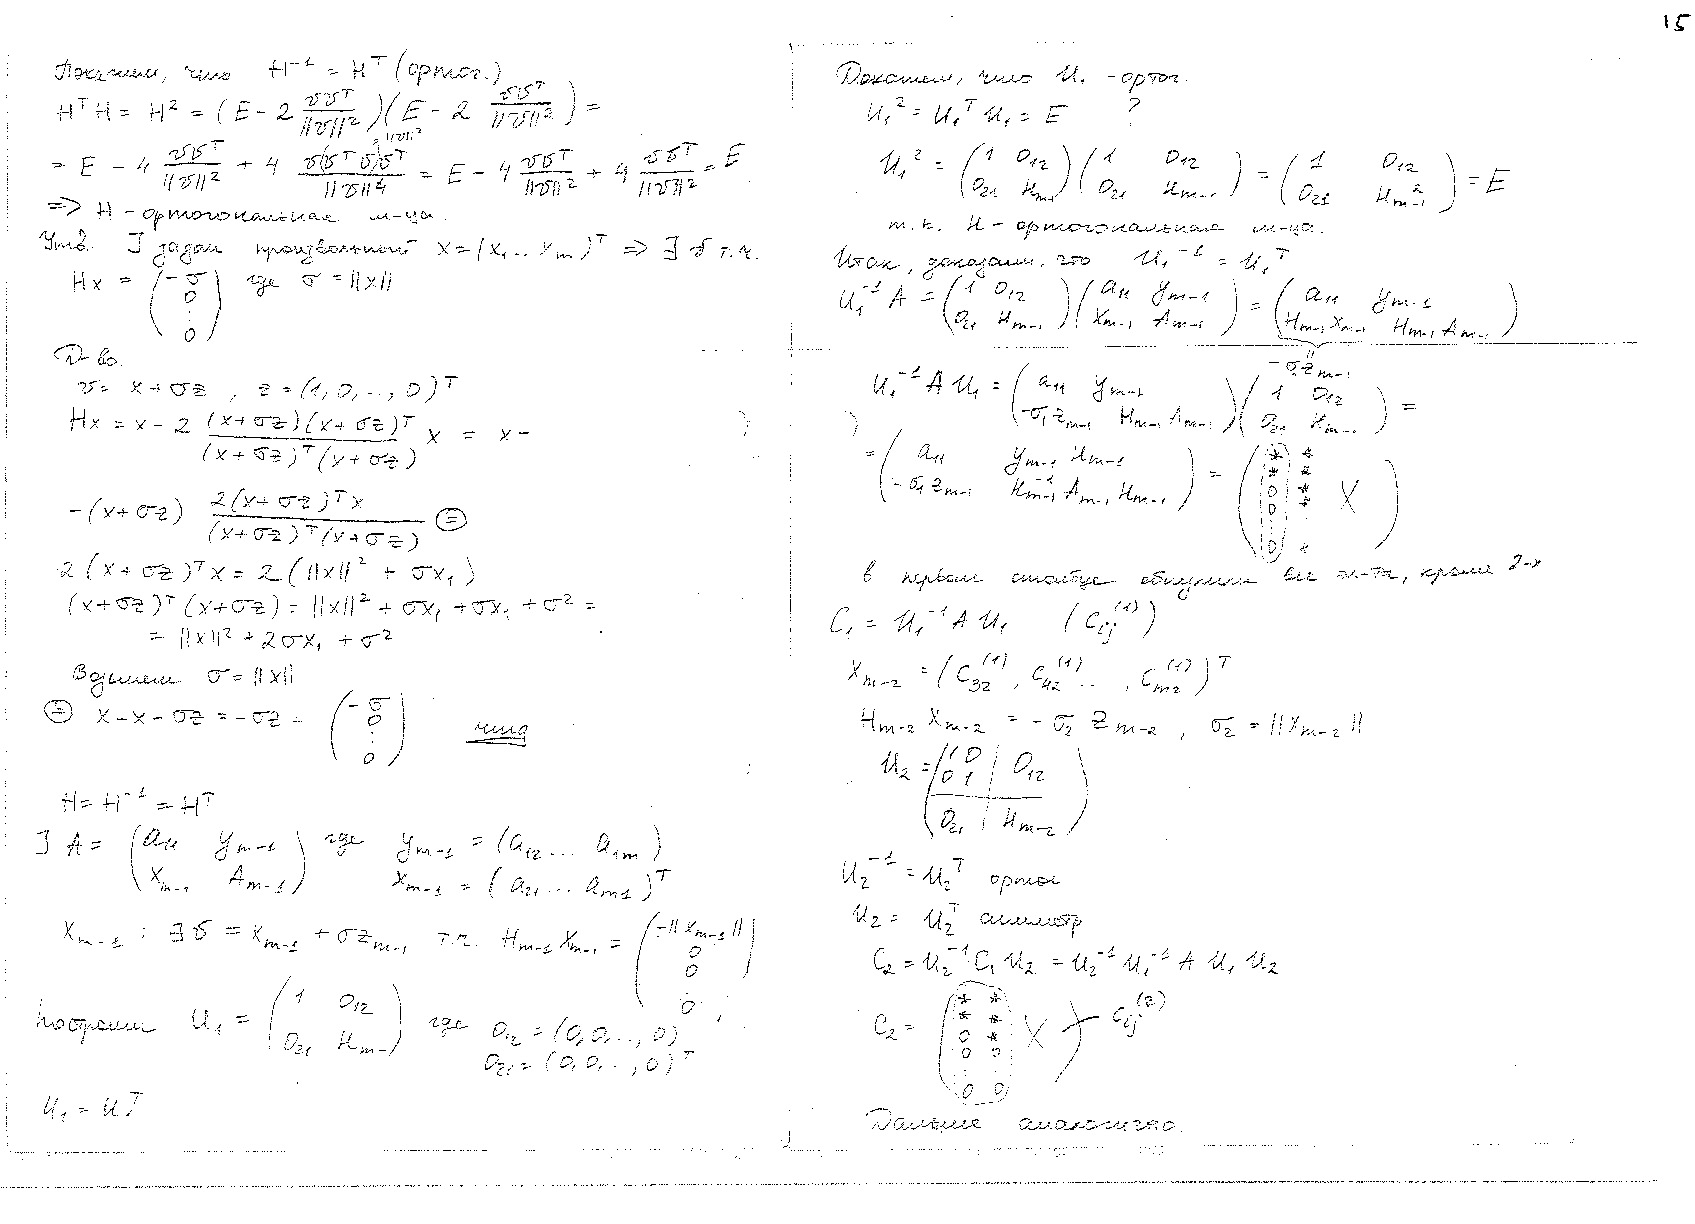 15
Покажем, что H⁻¹ = Hᵀ (ортог.)
HᵀH = H² = (E - 2 υυᵀ/||υ||²)(E - 2 υυᵀ/||υ||²) =
||υ||²
= E - 4 υυᵀ/||υ||² + 4 υ(υᵀυ)υᵀ/||υ||⁴ = E - 4 υυᵀ/||υ||² + 4 υυᵀ/||υ||² = E
=> H - ортогональная м-ца.
Утв. ] задан произвольный x = (x₁ .. xₘ)ᵀ => ∃ υ т.ч.
Hx = (-σ 0 ⋮ 0) где σ = ||x||
Д-во.
υ = x + σz , z = (1, 0, .., 0)ᵀ
Hx = x - 2 (x+σz)(x+σz)ᵀ/(x+σz)ᵀ(x+σz) x = x -
-(x+σz) 2(x+σz)ᵀx/(x+σz)ᵀ(x+σz) ⊜
2(x+σz)ᵀx = 2(||x||² + σx₁)
(x+σz)ᵀ(x+σz) = ||x||² + σx₁ + σx₁ + σ² =
= ||x||² + 2σx₁ + σ²
Возьмем σ = ||x||
⊜ x - x - σz = -σz = (-σ 0 ⋮ 0) чтд
H = H⁻¹ = Hᵀ
] A = (a₁₁ yₘ₋₁ xₘ₋₁ Aₘ₋₁) где yₘ₋₁ = (a₁₂ ... a₁ₘ)
xₘ₋₁ = (a₂₁ ... aₘ₁)ᵀ
xₘ₋₁ : ∃ υ = xₘ₋₁ + σzₘ₋₁ т.ч. Hₘ₋₁xₘ₋₁ = (-||xₘ₋₁|| 0 0 ⋮ 0)
Построим U₁ = (1 0₁₂ 0₂₁ Hₘ₋₁) где 0₁₂ = (0,0,..,0)
0₂₁ = (0,0,..,0)ᵀ
U₁ = Uᵀ
Докажем, что U₁ - ортог.
U₁² = U₁ᵀU₁ = E ?
U₁² = (1 0₁₂ 0₂₁ Hₘ₋₁)(1 0₁₂ 0₂₁ Hₘ₋₁) = (1 0₁₂ 0₂₁ H²ₘ₋₁) = E
т.к. H - ортогональная м-ца.
Итак, доказали, что U₁⁻¹ = U₁ᵀ
U₁⁻¹A = (1 0₁₂ 0₂₁ Hₘ₋₁)(a₁₁ yₘ₋₁ xₘ₋₁ Aₘ₋₁) = (a₁₁ yₘ₋₁ Hₘ₋₁xₘ₋₁ Hₘ₋₁Aₘ₋₁)
-σ₁zₘ₋₁
U₁⁻¹AU₁ = (a₁₁ yₘ₋₁ -σ₁zₘ₋₁ Hₘ₋₁Aₘ₋₁)(1 0₁₂ 0₂₁ Hₘ₋₁) =
= (a₁₁ yₘ₋₁Hₘ₋₁ -σ₁zₘ₋₁ H⁻¹ₘ₋₁Aₘ₋₁Hₘ₋₁) = (* * * * 0 * 0 * ⋮ 0 * X)
в первом столбце обнулили все эл-ты, кроме 2-х
C₁ = U₁⁻¹AU₁ (Cᵢⱼ⁽¹⁾)
xₘ₋₂ = (C₃₂⁽¹⁾, C₄₂⁽¹⁾ .. , Cₘ₂⁽¹⁾)ᵀ
Hₘ₋₂xₘ₋₂ = -σ₂zₘ₋₂ , σ₂ = ||xₘ₋₂||
U₂ = (1 0 0 1 | 0₁₂ 0₂₁ | Hₘ₋₂)
U₂⁻¹ = U₂ᵀ ортог
U₂ = U₂ᵀ симметр
C₂ = U₂⁻¹C₁U₂ = U₂⁻¹U₁⁻¹AU₁U₂
C₂ = (* * * * 0 * 0 0 ⋮ 0 0 X) Cᵢⱼ⁽²⁾
Дальше аналогично.